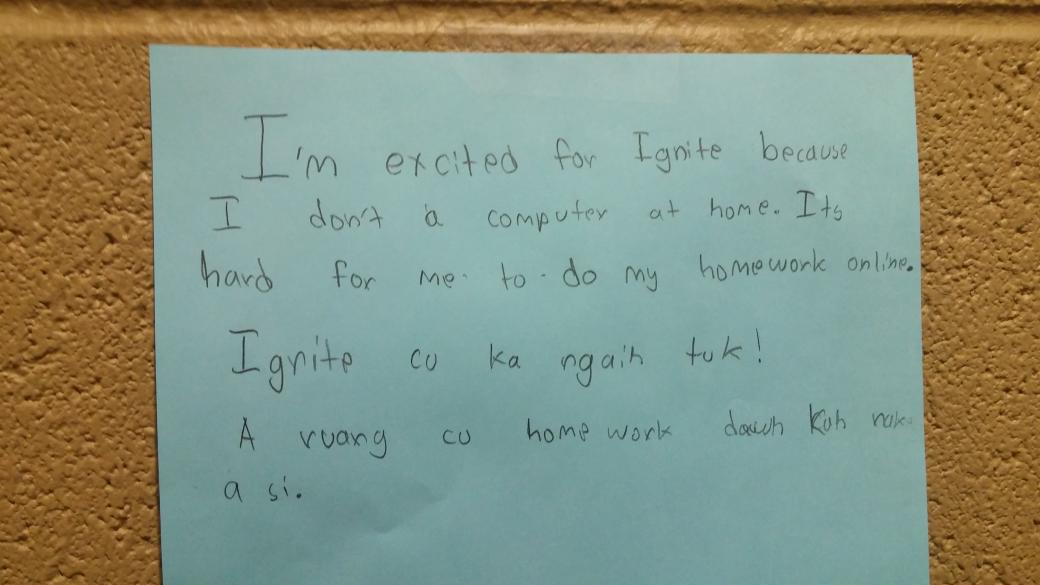 I'm excited for Ignite because
I don't a computer at home. Its
hard for me to do my homework online.
Ignite cu ka ngaih tuk!
A ruang cu home work dawh Kuh nak
a si.